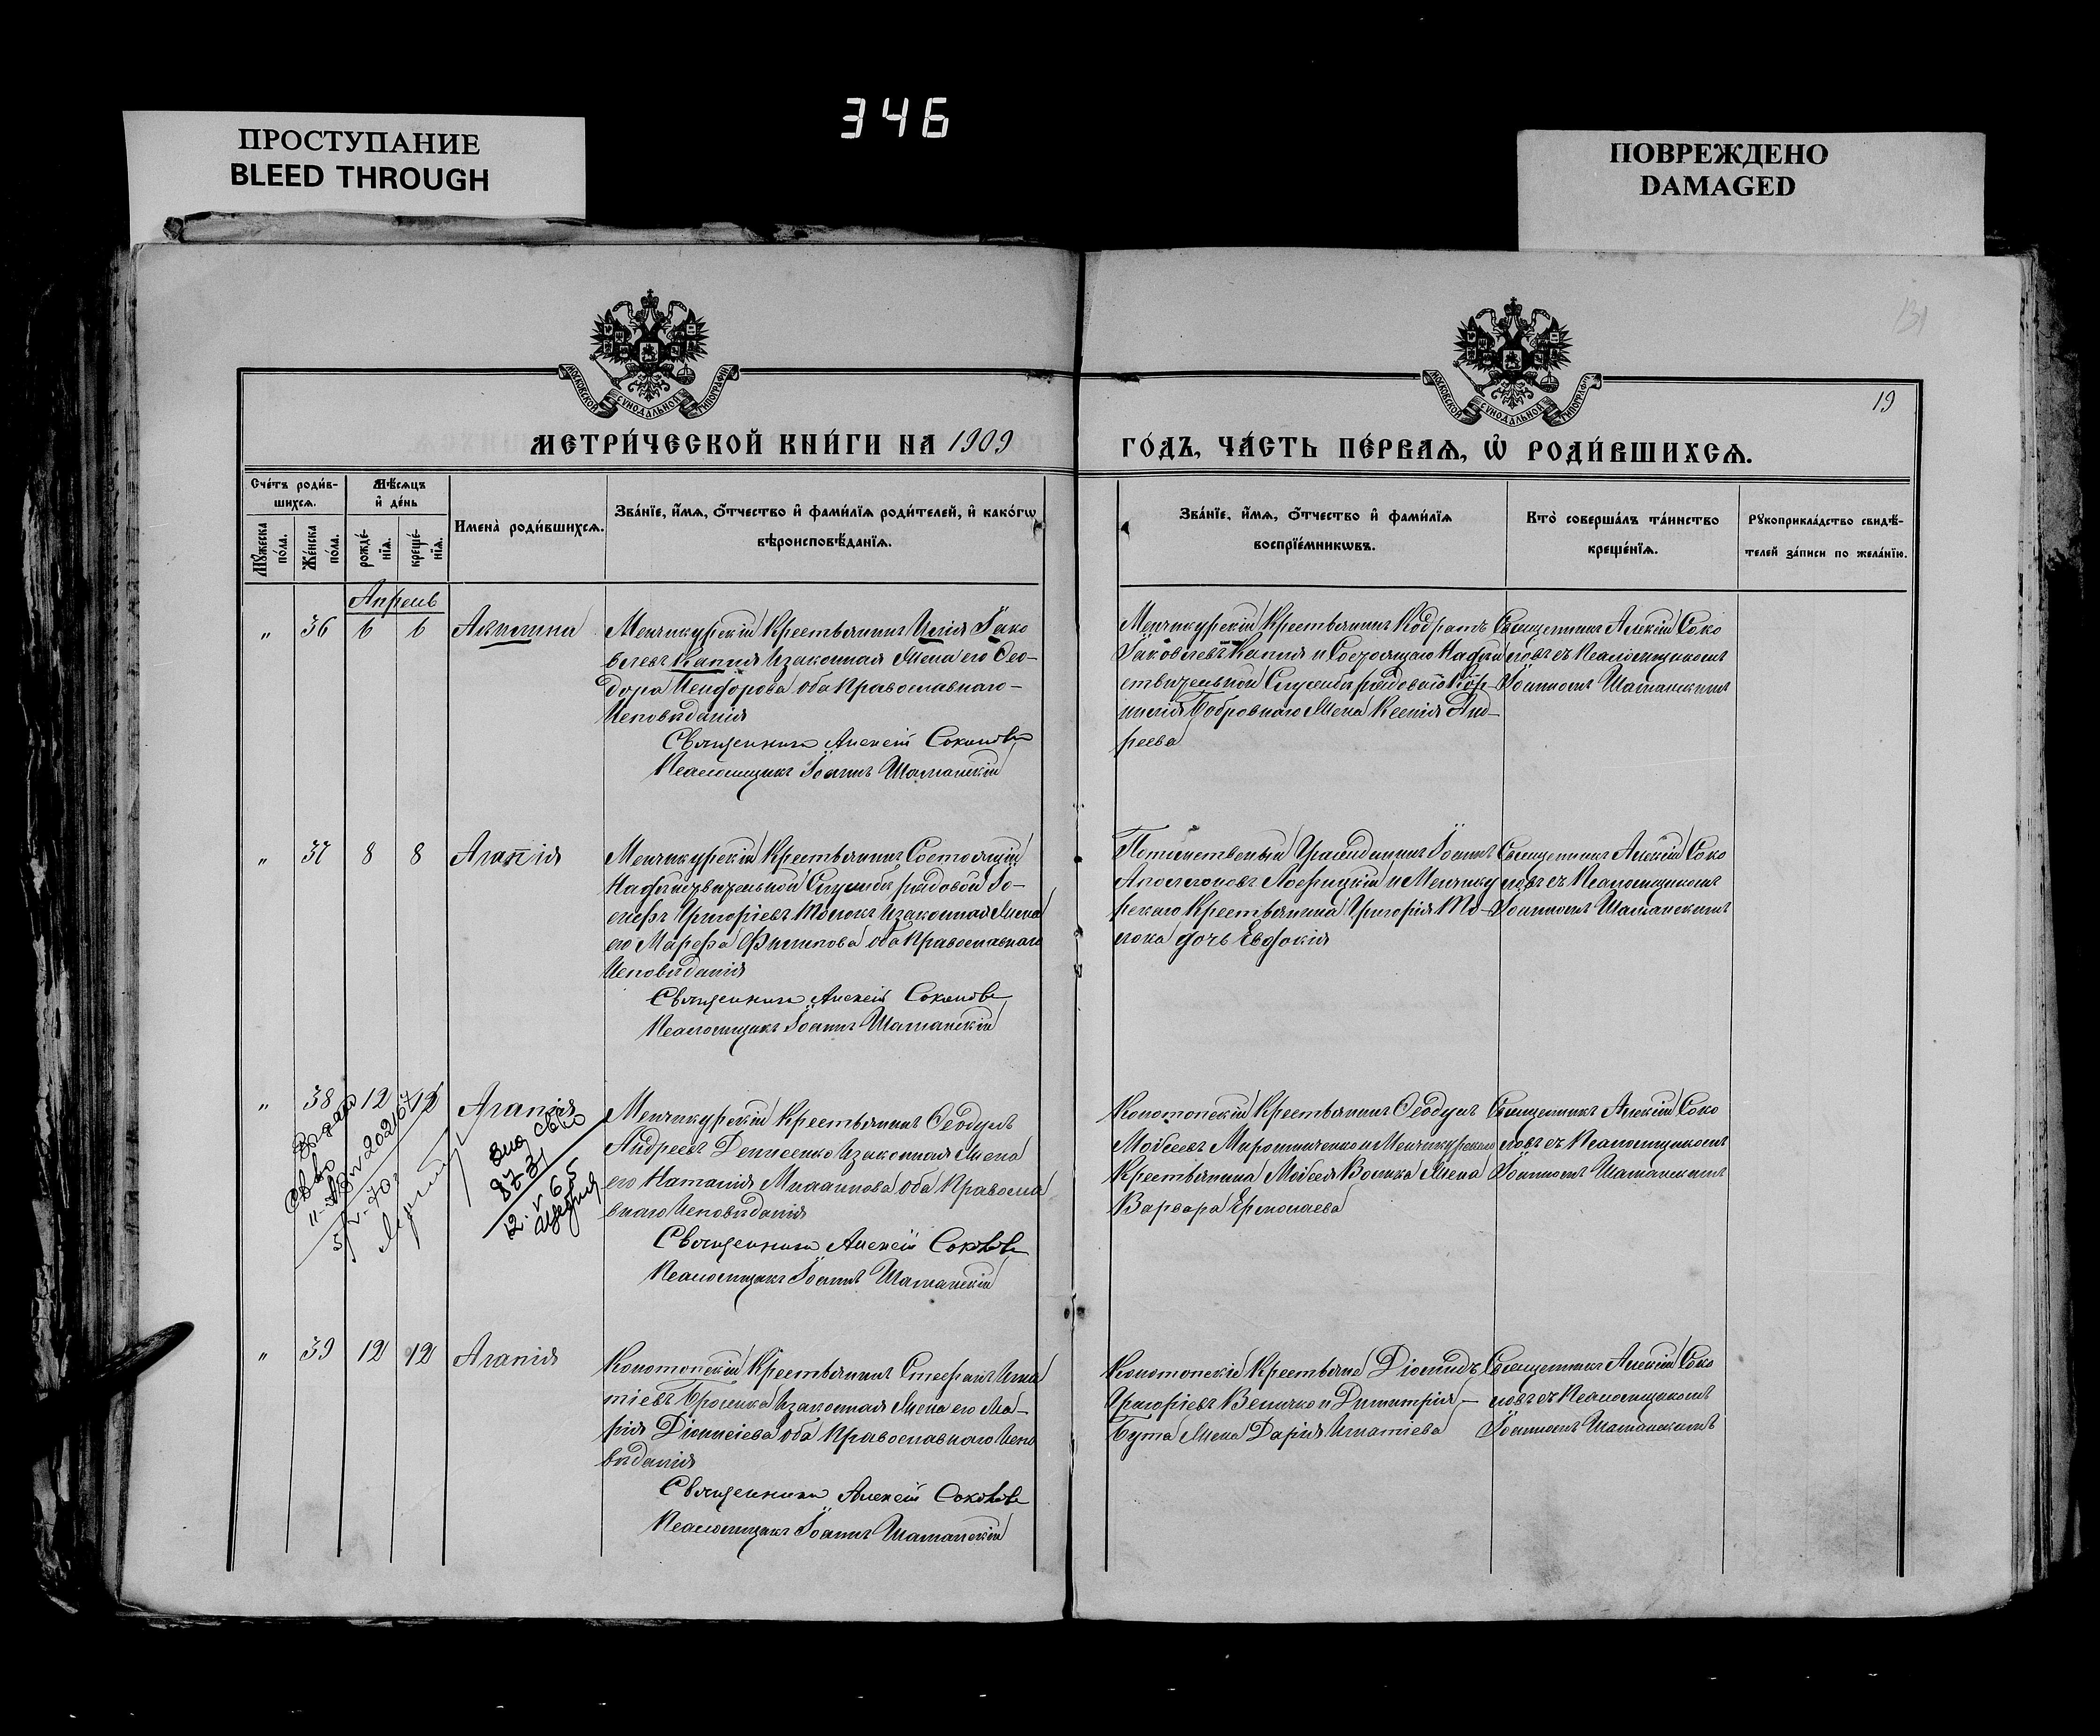 346
ПРОСТУПАНИЕ
BLEED THROUGH
ПОВРЕЖДЕНО
DAMAGED
МОСКОВСКОЙ СУНОДАЛЬНОЙ ТИПОГРАФІИ
МОСКОВСКОЙ СУНОДАЛЬНОЙ ТИПОГРАФІИ
131
19
МЕТРИ́ЧЕСКОЙ КНИ́ГИ НА 1909
ГО́ДЪ, ЧА́СТЬ ПЕ́РВАѦ, Ѡ҆ РОДИ́ВШИХСѦ.
Сче́тъ роди́в-
шихсѧ.
Мꙋжеска по́ла.
Же́нска по́ла.
Мѣ́сѧцъ
и҆ де́нь
рожде́-
нїѧ.
креще́-
нїѧ.
Имена̀ роди́вшихсѧ.
Зва́нїе, и҆́мѧ, ѻ҆́тчество и҆ фами́лїѧ роди́телей, и҆ како́гѡ
вѣроисповѣ́данїѧ.
Зва́нїе, и҆́мѧ, ѻ҆́тчество и҆ фами́лїѧ
воспрїе́мникѡвъ.
Кто̀ соверша́лъ та́инство
креще́нїѧ.
Рꙋкоприкла́дство свидѣ́-
телей за́писи по жела́нїю.
Апрель
" 36 6 6 Акилина
Менчикурскій Крестьянинъ Илія Іако
влевъ Капля И законная Жена его Ѳео-
дора Никифорова оба Православнаго
Исповѣданія
Священникъ Алексій Соколовъ
Псаломщикъ Іоаннъ Шаманскій
Менчикурскій Крестьянинъ Кодратъ
Іаковлевъ Капля и Состоящаго На дѣй
ствительной Службѣ рядоваго
Бобровнаго Жена Ксенія Анд-
реева
Священникъ Алексій Соко
ловъ съ Псаломщикомъ
Іоанномъ Шаманскимъ
" 37 8 8 Агапія
Менчикурскій Крестьянинъ Состоящій
На дѣйствительной Службѣ рядовой Іо-
сифъ Григоріевъ Токъ И законная Жена
его Марѳа Филипова оба Православнаго
Исповѣданія
Священникъ Алексій Соколовъ
Псаломщикъ Іоаннъ Шаманскій
Потомственый Гражданинъ Іоаннъ
и Менчику
рскаго Крестьянина Григорія
дочь Евдокія
Священникъ Алексій Соко
ловъ съ Псаломщикомъ
Іоанномъ Шаманскимъ
" 38 12 12 Агапія
Менчикурскій Крестьянинъ Ѳеодулъ
Андреевъ Денисенко И законная Жена
его Наталія Михаилова оба Правосла
внаго Исповѣданія
Священникъ Алексій Соколовъ
Псаломщикъ Іоаннъ Шаманскій
Конотопскій Крестьянинъ Ѳеодулъ
Мойсеевъ Мирошниченко и Менчикурскаго
Крестьянина Мойсея Волика Жена
Варвара Ермолаева
Священникъ Алексій Соко
ловъ съ Псаломщикомъ
Іоанномъ Шаманскимъ
" 39 12 12 Агапія
Конотопскій Крестьянинъ Стефанъ Игна
тіевъ И законная Жена его Ма-
рія Діонисіева оба Православнаго Испо
вѣданія
Священникъ Алексій Соколовъ
Псаломщикъ Іоаннъ Шаманскій
Конотопскіе Крестьяне Діомидъ
Григоріевъ Величко и Димитрія
Бута Жена Дарія Игнатіева
Священникъ Алексій Соко
ловъ съ Псаломщикомъ
Іоанномъ Шаманскимъ